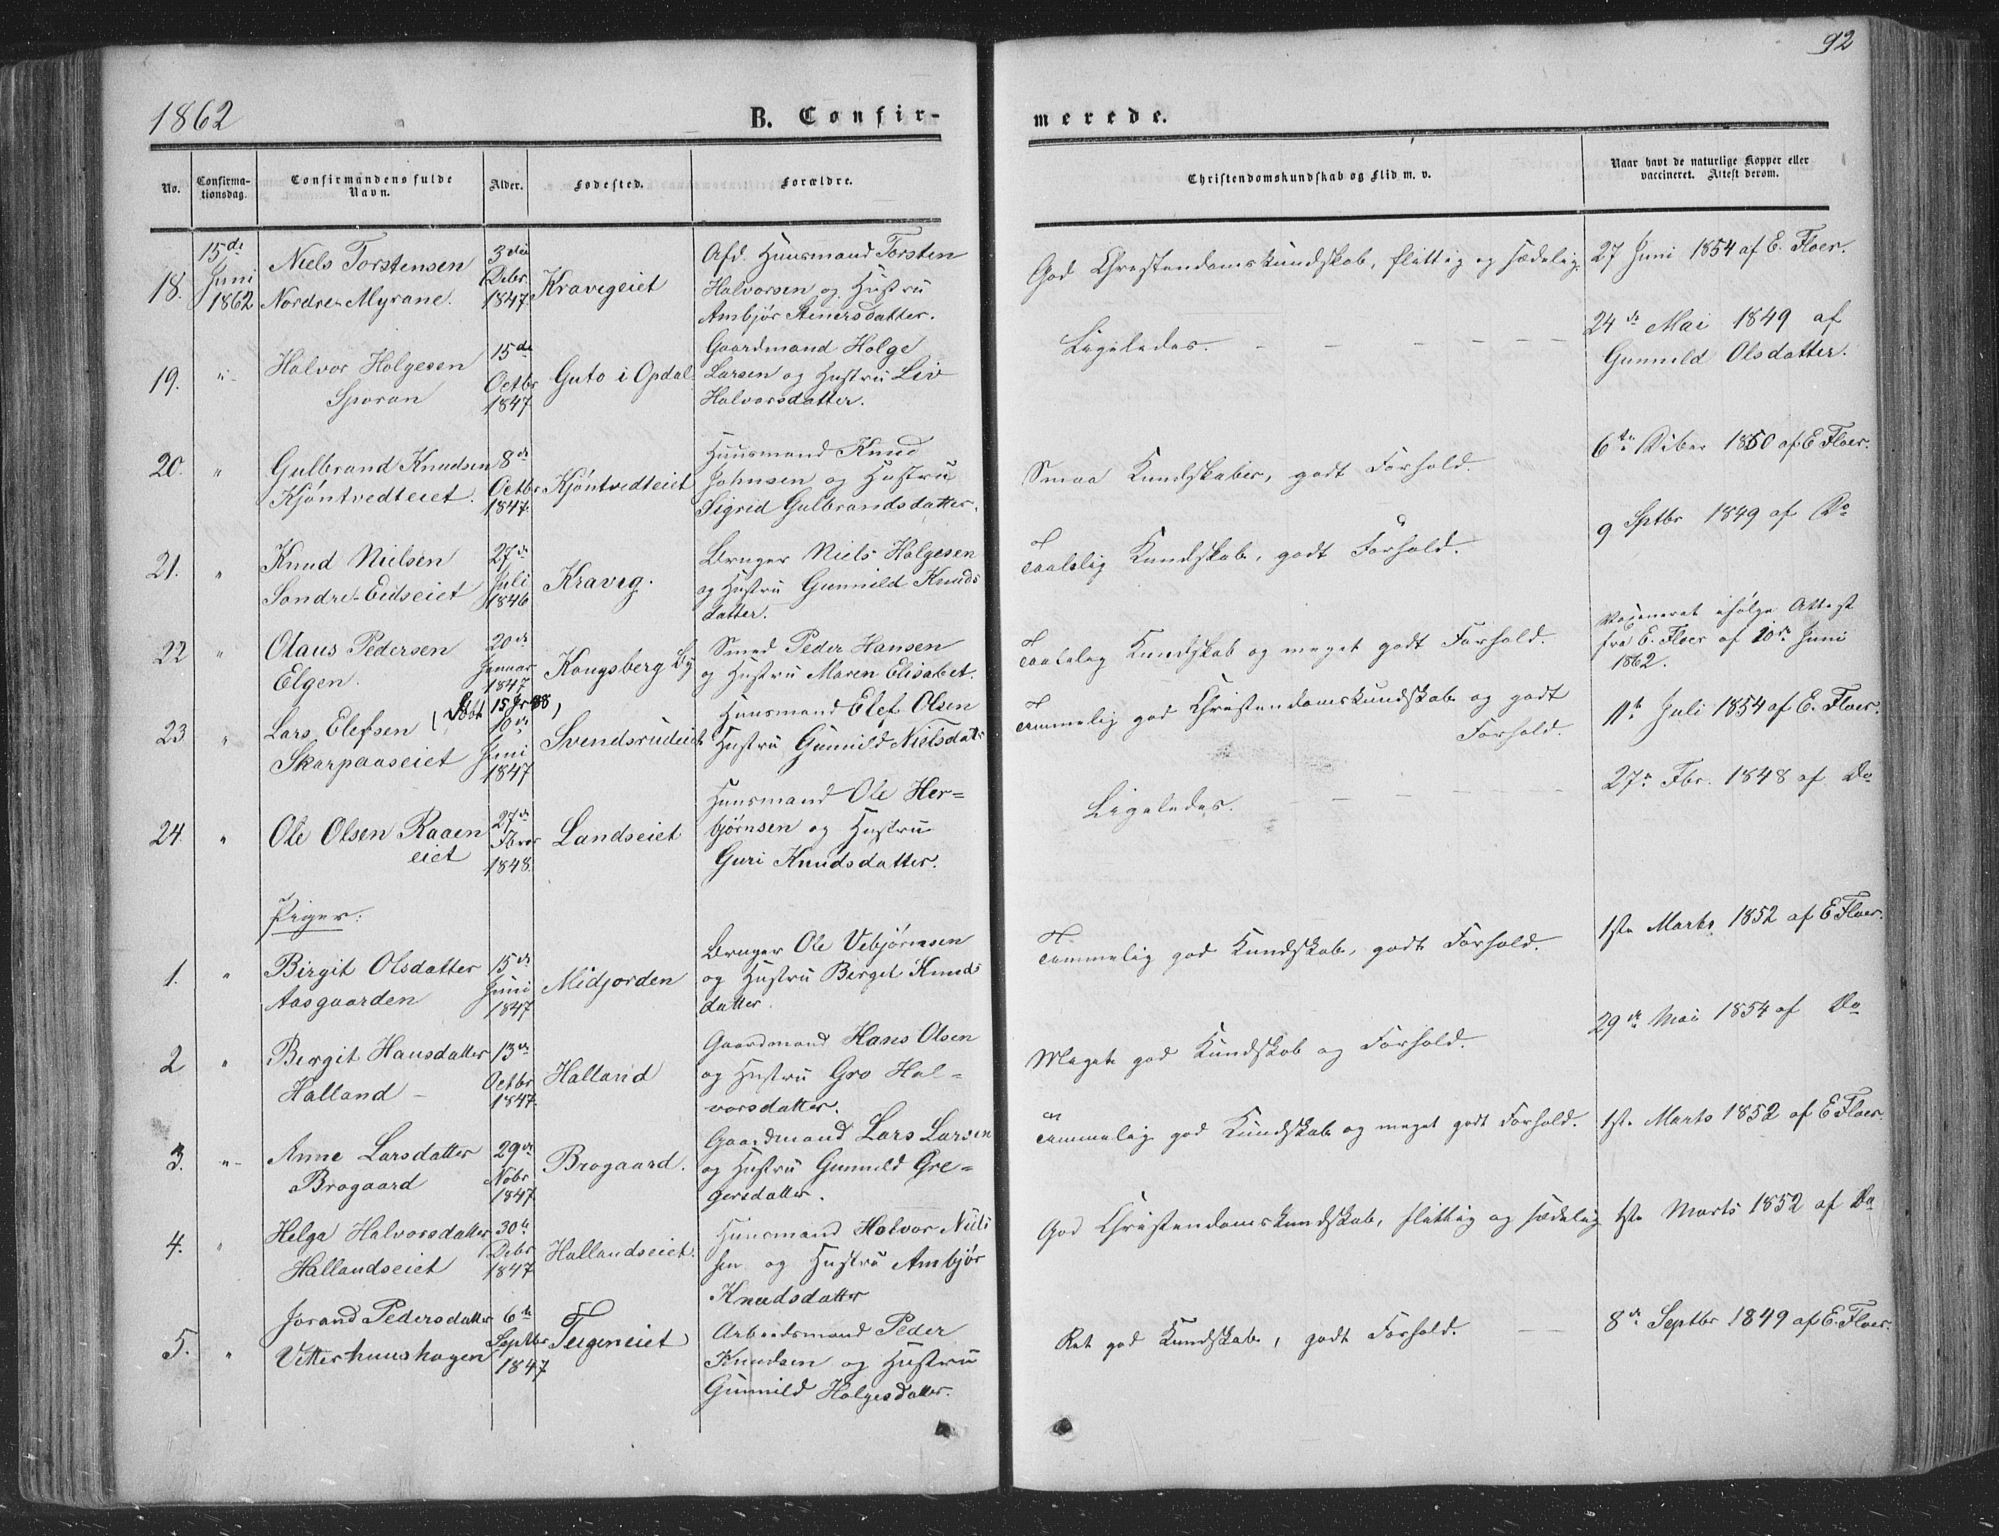 92
1862
B. Confir-
merede.
No.
Confirma-
tionsdag.
Confirmandens fulde
Navn.
Alder.
Fødested.
Forældre.
Christendomskundskab og Flid m. v.
Naar havt de naturlige Kopper eller
vaccineret. Attest derom.
18. 15de Juni 1862
Niels Torstensen
Nordre-Myrane.
3die Debr 1847.
Kravigeiet
Afd. Huusmand Torsten
Halvorsen og Hustru
Ambjør Steners datter.
God Christendomskundskab, flittig og sædelig.
27 Juni 1854 af E. Floer.
19. "
Halvor Holgesen
Sporan
15de Octbr 1847.
Guto i Opdal
Gaardmand Holge
Larsen og Hustru Liv
Halvorsdatter.
Ligeledes. — — — — — —
24de Mai 1849 af
Gunnild Olsdatter.
20. "
Gulbrand Knudsen
Kjøntvedteiet.
8de Octbr 1847.
Kjøntvedteiet
Huusmand Knud
Johnsen og Hustru
Sigrid Gulbrandsdatter.
Smaa Kundskaber, godt Forhold.
6te Diber 1850 af E Floer.
21. "
Knud Nielsen
Søndre-Eidseiet
27de Juli 1846
Kravig.
Bruger Niels Holgesen
og Hustru Gunnild Knuds
datter.
Taalelig Kundskab, godt Forhold.
9 Sptbr 1849 af Do
22 "
Olaus Pedersen
Elgen.
20de Januar 1847
Kongsberg By
Smed Peder Hansen
og Hustru Maren Elisabet.
Taalelig Kundskab og meget godt Forhold.
Vaxineret ifølge Attest
fra E. Floer af 10de Juni
1862.
23 "
Lars Elefsen (Døbt 15/ 88)
Skarpaaseiet
10de Juni 1847
Svendsrudeiet
Huusmand Elef Olsen
Hustru Gunnild Nielsdatr
Temmelig god Christendomskundskab og godt
Forhold.
11te Juli 1854 af E. Floer.
24. "
Ole Olsen Raaen
eiet
27de Fbrar 1848.
Landseiet
Huusmand Ole Her-
bjørnsen og Hustru
Guri Knudsdatter.
Ligeledes. — — — — — —
27de Fbr. 1848 af Do
Piger:
1. "
Birgit Olsdatter
Aasgaarden
15de Juni 1847
Midjorden
Bruger Ole Vebjørnsen
og Hustru Birgit Knuds
datter.
Temmelig god Kundskab, godt Forhold.
1ste Marts 1852 af E Floer.
2 "
Birgit Hansdatter
Halland —
13de Octbr 1847.
Halland
Gaardmand Hans Olsen
og Hustru Gro Hal-
vorsdatter.
Meget god Kundskab og Forhold.
29de Mai 1854 af Do
3. "
Anne Larsdatter
Brogaard
29de Nobr 1847
Brogaard.
Gaardmand Lars Larsen
og Hustru Gunnild Gre-
gersdatter.
Temmelig god Kundskab og meget godt Forhold.
1ste Marts 1852 af E Floer.
4. "
Helga Halvorsdatter
Hallandseiet
30te Debr 1847
Hallandseiet.
Huusmand Halvor Niel
sen og Hustru Ambjør
Knudsdatter
God Christendomskundskab, flittig og sædelig
1ste Marts 1852 af Do
5. "
Jorand Pedersdatter
Vitterhuushagen
6te Septbr 1847
Teigeneiet
Arbeidsmand Peder
Knudsen og Hustru
Gunnild Holgesdatter.
Ret god Kundskab, godt Forhold. —
8de Septbr 1849 af E. Floer.